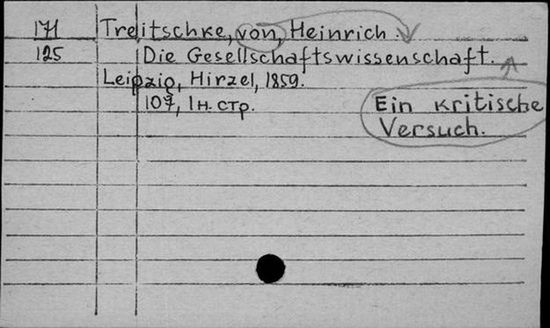 171 Treitschke, von, Heinrich
125 Die Gesellschaftswissenschaft.
Leipzig, Hirzel, 1859.
107, 1 н. стр.
Ein kritische
Versuch.